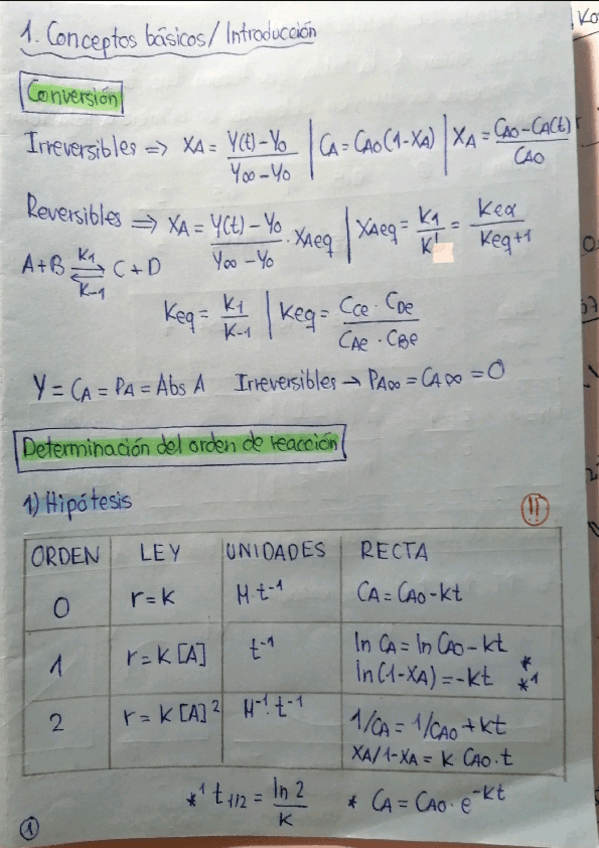 1. Conceptos básicos/Introducción
Conversión
Irreversibles => XA = Y(t)-Y0 / Y∞-Y0 | CA = CA0(1-XA) | XA = CA0-CA(t) / CA0
Reversibles => XA = Y(t)-Y0 / Y∞-Y0 · XAeq | XAeq = K1 / K' = Keq / Keq+1
A+B ⇌ C+D
K1
K-1
Keq = K1 / K-1 | Keq = CCe · CDe / CAe · CBe
Y = CA = PA = Abs A Irreversibles → PA∞ = CA∞ = 0
Determinación del orden de reacción
1) Hipótesis
!!
ORDEN LEY UNIDADES RECTA
0 r = k M·t⁻¹ CA = CA0 - kt
1 r = k [A] t⁻¹ ln CA = ln CA0 - kt *
ln(1-XA) = -kt *¹
2 r = k [A]² M⁻¹·t⁻¹ 1/CA = 1/CA0 + kt
XA/1-XA = k CA0·t
*¹ t1/2 = ln 2 / K * CA = CA0 · e^-kt
1